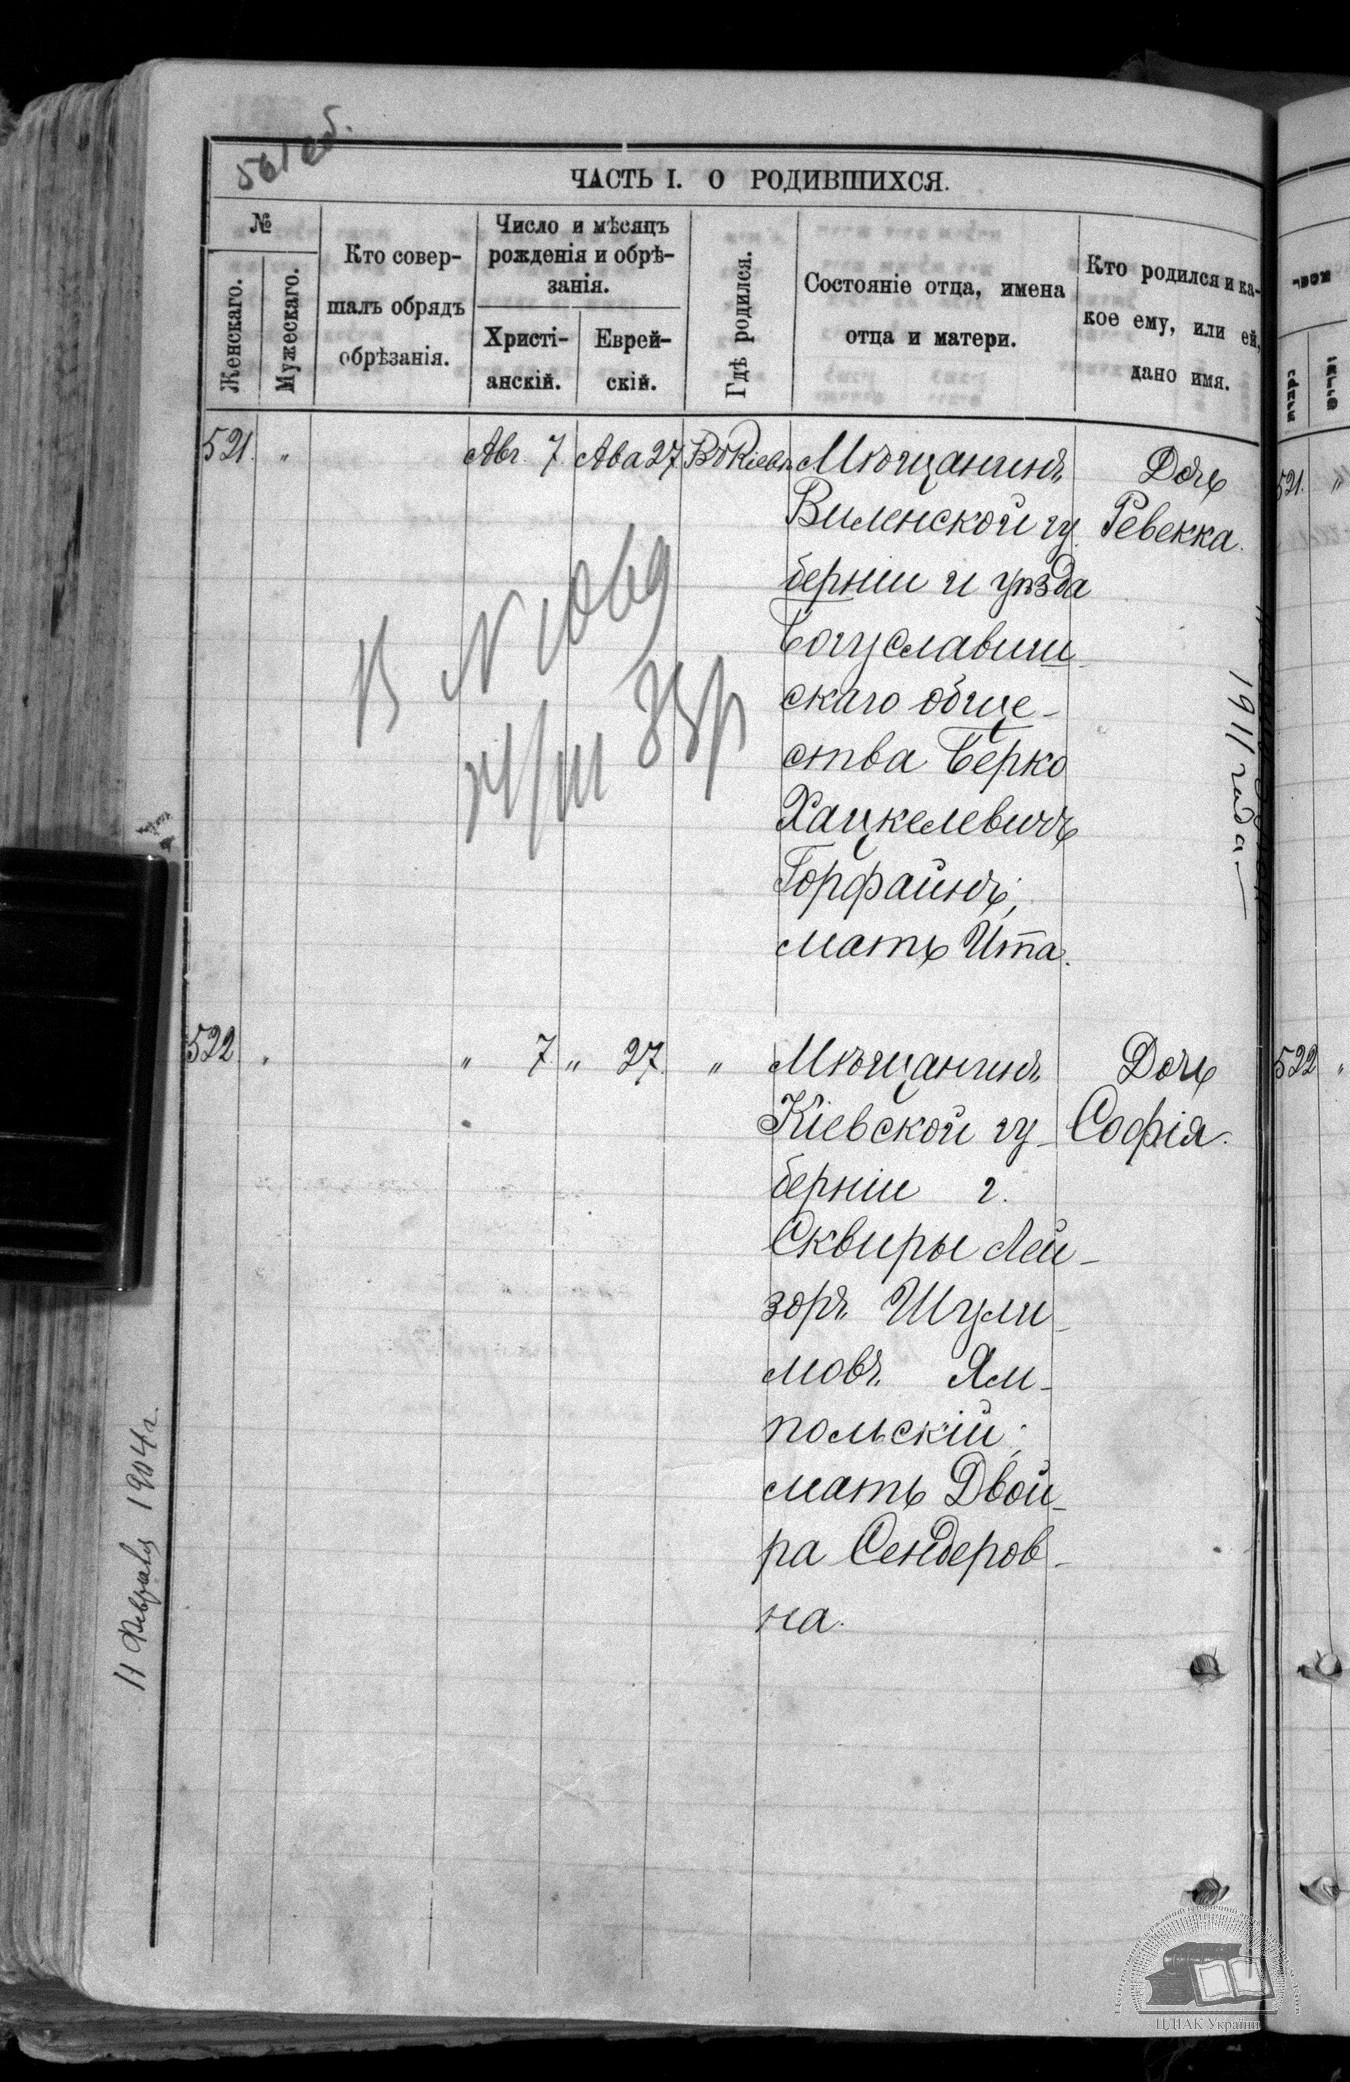 561 об.
ЧАСТЬ I. О РОДИВШИХСЯ.
№
Женскаго.
Мужескаго.
Кто совер-
шалъ обрядъ
обрѣзанія.
Число и мѣсяцъ
рожденія и обрѣ-
занія.
Христі-
анскій.
Еврей-
скій.
Гдѣ родился.
Состояніе отца, имена
отца и матери.
Кто родился и ка-
кое ему, или ей,
дано имя.
521. " Авг. 7. Ава 27. Въ Кіевѣ Мѣщанинъ Дочь
Виленской гу- Ревекка.
берніи и уѣзда
Богуславиш-
скаго обще-
ства Берко
Хацкелевичъ
Горфайнъ;
мать Ита.
В N 1069
1911 года
522 " " 7 " 27. " Мѣщанинъ Дочь
Кіевской гу- Софія.
берніи г.
Сквиры Лей-
зоръ Шули-
мовъ Ям-
польскій;
мать Двой-
ра Сендеров-
на.
11 Февраля 1904 г.
521. "
522 "
ЦДІАК України